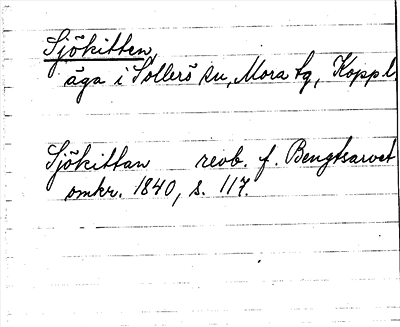 Sjökitten,
äga i Sollerö sn, Mora tg, Koppl.
Sjökittan revb. f. Bengtsarvet
omkr. 1840, s. 117.